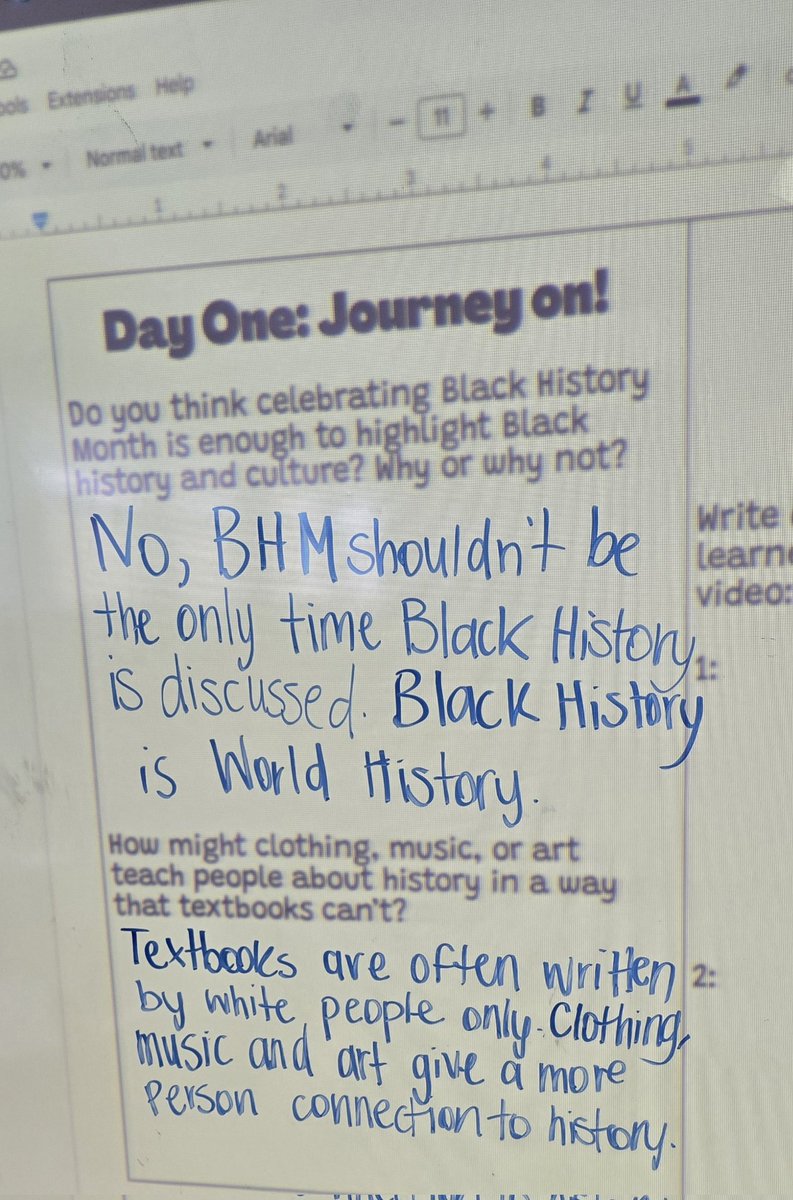 ools Extensions Help
0% Normal text Arial - 11 + B I U A
1 2 3 4 5
Day One: Journey on!
Do you think celebrating Black History
Month is enough to highlight Black
history and culture? Why or why not?
No, BHM shouldn't be
the only time Black History
is discussed. Black History
is World History.
How might clothing, music, or art
teach people about history in a way
that textbooks can't?
Textbooks are often written
by white people only. Clothing,
music and art give a more
Person connection to history.
Write
learne
video:
1:
2: